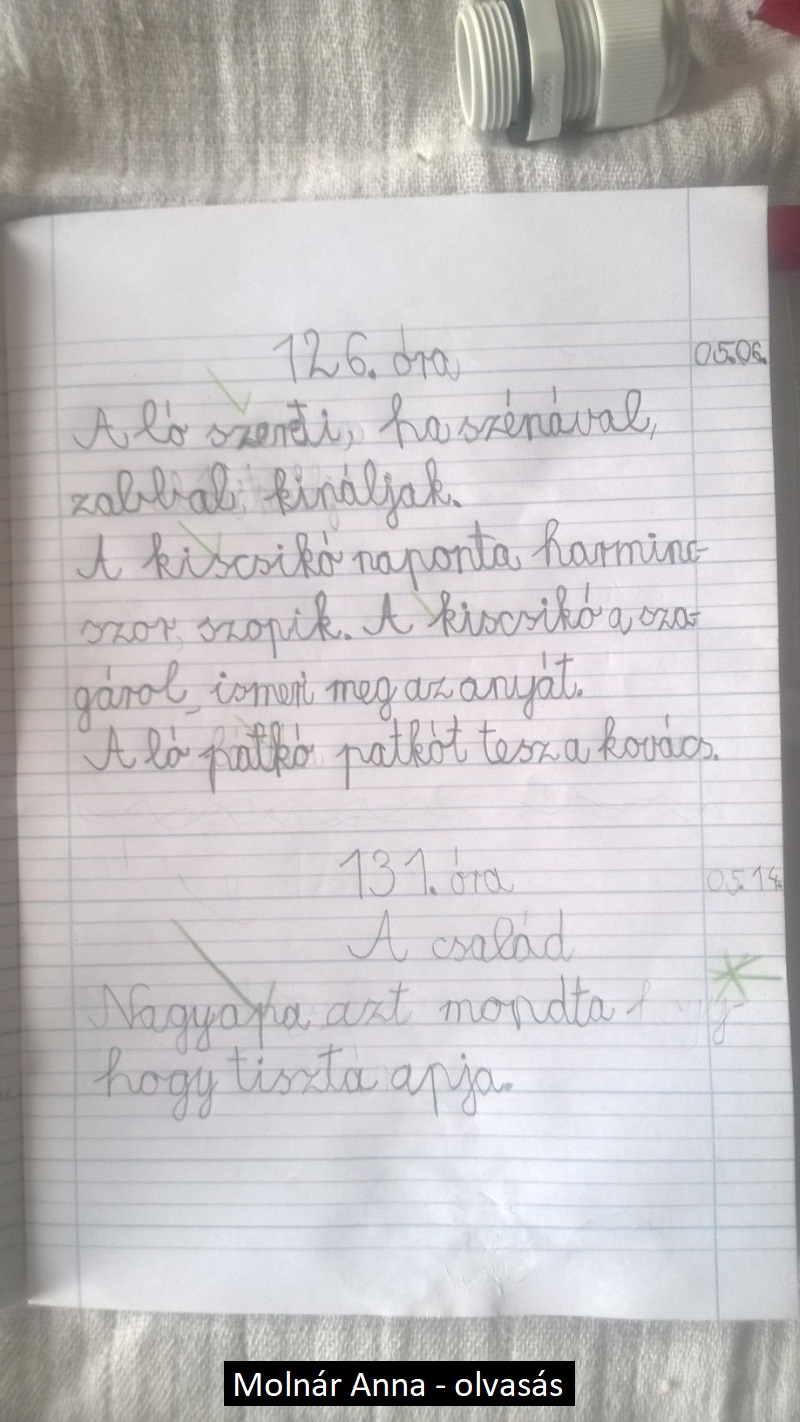 126. óra 05.06.
A ló szereti, ha szénával,
zabbal kínáljak.
A kiscsikó naponta harminc-
szor szopik. A kiscsikó a sza-
gárol ismeri meg az anyját.
A ló patkó patkót tesz a kovács.
131. óra 05.14.
A család
Nagyapa azt mondta
hogy tiszta apja.
Molnár Anna - olvasás